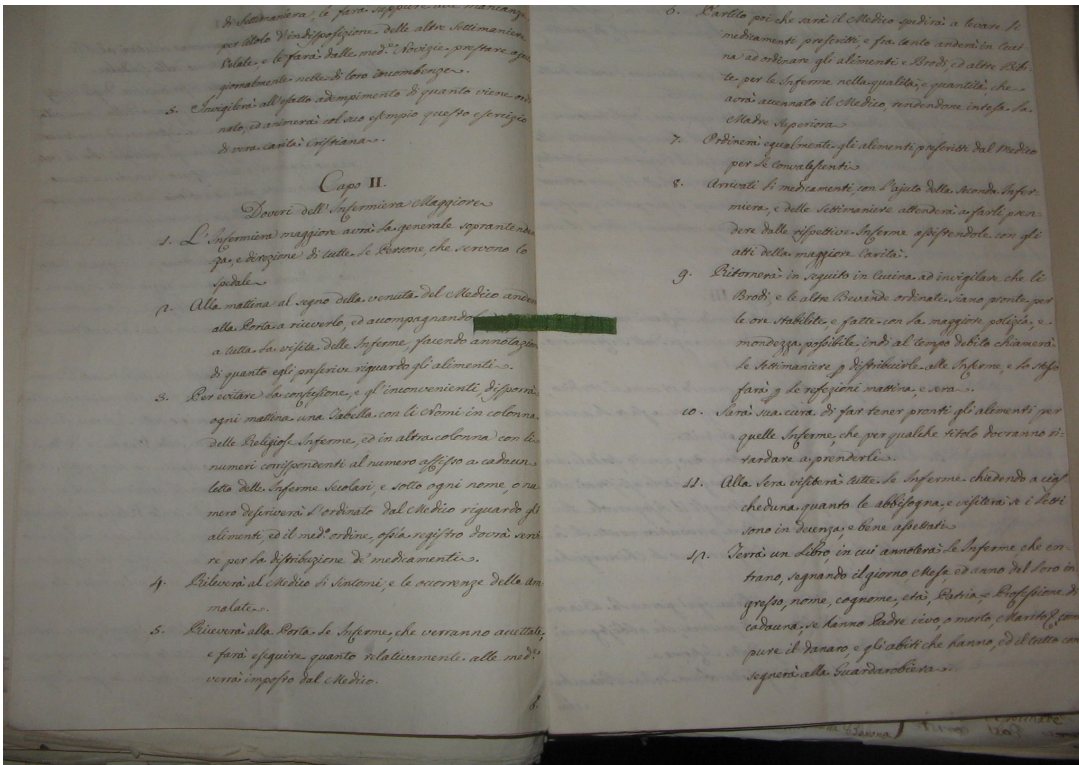 di Settimaniera, le farà supplire
per titolo d'indisposizione delle altre Settimaniere
Velate, e le farà dalle med.e Novizie prestare
gionalmente nelle di loro incombenze.
5. Invigilerà all'esatto adempimento di quanto viene ordi
nato, ed animerà col suo esempio questo esercizio
di vera carità Cristiana.
Capo II.
Doveri dell'Infermiera Maggiore
1. L'Infermiera maggiore avrà la generale soprantenden
za, e direzione di tutte le Persone, che servono lo
spedale
2. Alla mattina al segno della venuta del Medico anderà
alla Porta a riceverlo, ed accompagnandolo
a tutta la visita delle Inferme, facendo annotazione
di quanto egli prescrive riguardo gli alimenti.
3. Per evitare la confusione, e gl'inconvenienti disporrà
ogni mattina una Tabella con li Nomi in colonna
delle Religiose Inferme, ed in altra colonna con li
numeri corrispondenti al numero affisso a cadaun
letto delle Inferme Secolari, e sotto ogni nome, o nu
mero descriverà l'ordinato dal Medico riguardo gli
alimenti, ed il med.o ordine, ossia registro dovrà servi
re per la distribuzione de' medicamenti.
4. Rileverà al Medico li sintomi, e le occorrenze delle Am
malate.
5. Riceverà alla Porta le Inferme, che verranno accettate,
e farà eseguire quanto relativamente alle med.e
verrà imposto dal Medico.
6. Partito poi che sarà il Medico spedirà a levare li
medicamenti prescritti, e fra tanto anderà in Cuci-
na ad ordinare gli alimenti e Brodi, ed altre Bibi-
te per le Inferme nella qualità, e quantità che
avrà accennato il Medico, rendendone intesa la
Madre Superiora
7. Ordinerà egualmente gli alimenti prescritti dal Medico
per le convalescenti
8. Arrivati li medicamenti con l'ajuto della seconda Infer-
miera, e delle Settimaniere attenderà a farli pren-
dere dalle rispettive Inferme assistendole con gli
atti della maggiore Carità.
9. Ritornerà in seguito in Cucina ad invigilare che li
Brodi, e le altre Bevande ordinate siano pronte per
le ore stabilite, e fatte con la maggiore polizia, e
mondezza possibile, indi al tempo debito chiamerà
le Settimaniere p distribuirle alle Inferme, e lo stesso
farà p le refezioni mattina, e sera.
10. Sarà sua cura di far tener pronti gli alementi per
quelle Inferme, che per qualche titolo dovranno ri-
tardare a prenderli
11. Alla sera visiterà tutte le Inferme chiedendo a cias
cheduna quanto le abbisogna, e visiterà se i Letti
sono in decenza, e bene assettati
12. Terrà un Libro, in cui annoterà le Inferme che en-
trano, segnando il giorno, Mese, ed anno del loro in
gresso, nome, cognome, età, Patria, e Professione di
cadauna, se hanno Padre vivo, o morto, o Marito, come
pure il danaro, e gli abiti che hanno, ed il tutto con
segnerà alla Guardarobiera.